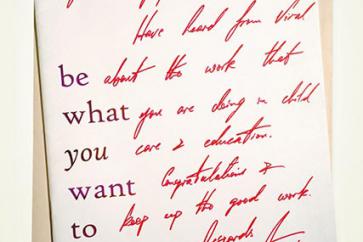 Have heard from Viral
be about the work that
what you are doing in child
you care & education.
want Congratulations &
to keep up the good work.
Regards